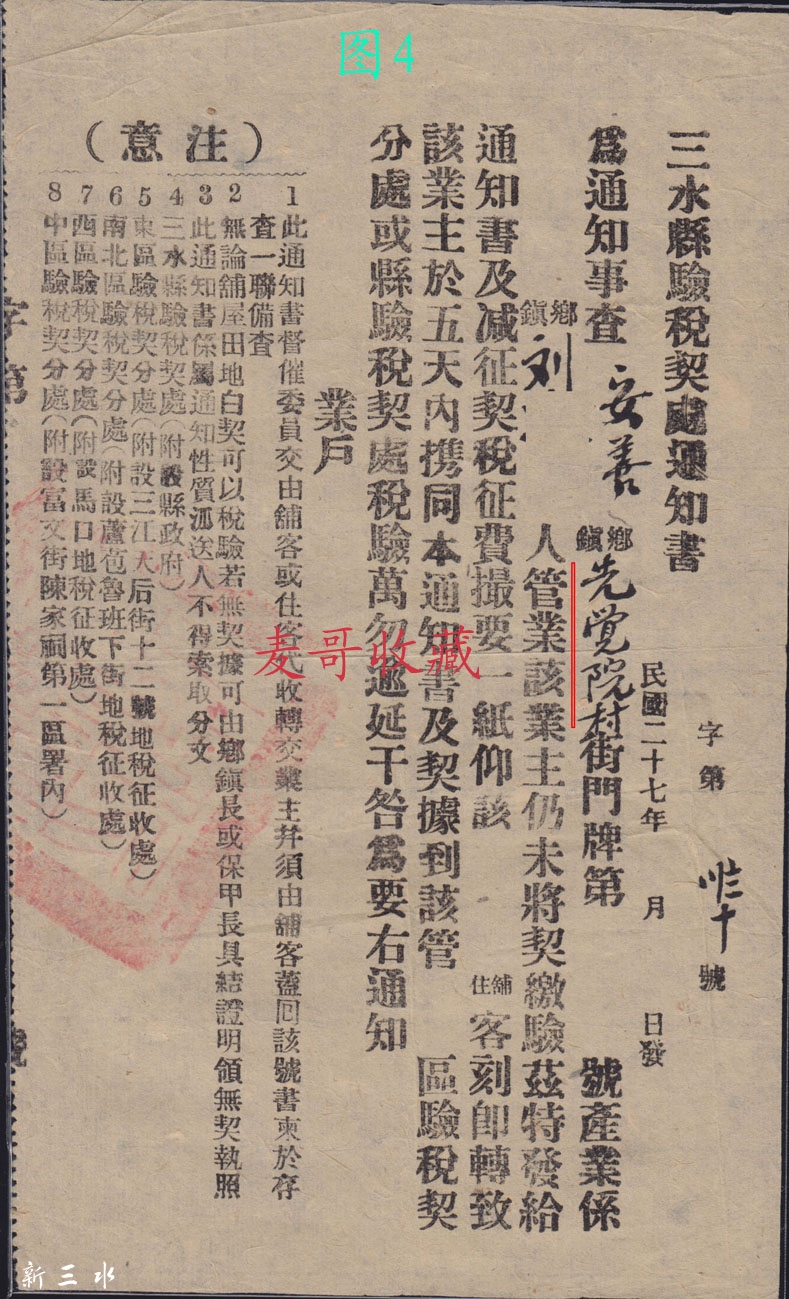 图4
三水縣驗稅契處通知書
字第 號
民國二十七年 月 日發
爲通知事查 安善 鄉鎮 先覺院村 街門牌第 號產業係
鄉鎮 刘 人管業該業主仍未將契繳驗茲特發給
通知書及减征契稅征費撮要一紙仰該 舖住 客刻卽轉致
該業主於五天內携同本通知書及契據到該管 區驗稅契
分處或縣驗稅契處稅驗萬勿逾延干咎爲要右通知
業戶
（注意）
1 此通知書督催委員交由舖客或住客代收轉交業主并須由舖客蓋回該號書柬於存
查一聯備查
2 無論舖屋田地白契可以稅驗若無契據可由鄉鎮長或保甲長具結證明領無契執照
3 此通知書係屬通知性質派送人不得索取分文
4 三水縣驗稅契處（附設縣政府）
5 東區驗稅契分處（附設三江大后街十二號地稅征收處）
6 南北區驗稅契分處（附設蘆苞魯班下街地稅征收處）
7 西區驗稅契分處（附設馬口地稅征收處）
8 中區驗稅契分處（附設富文街陳家祠第一區署內）
字第
號
麦哥收藏
新三水